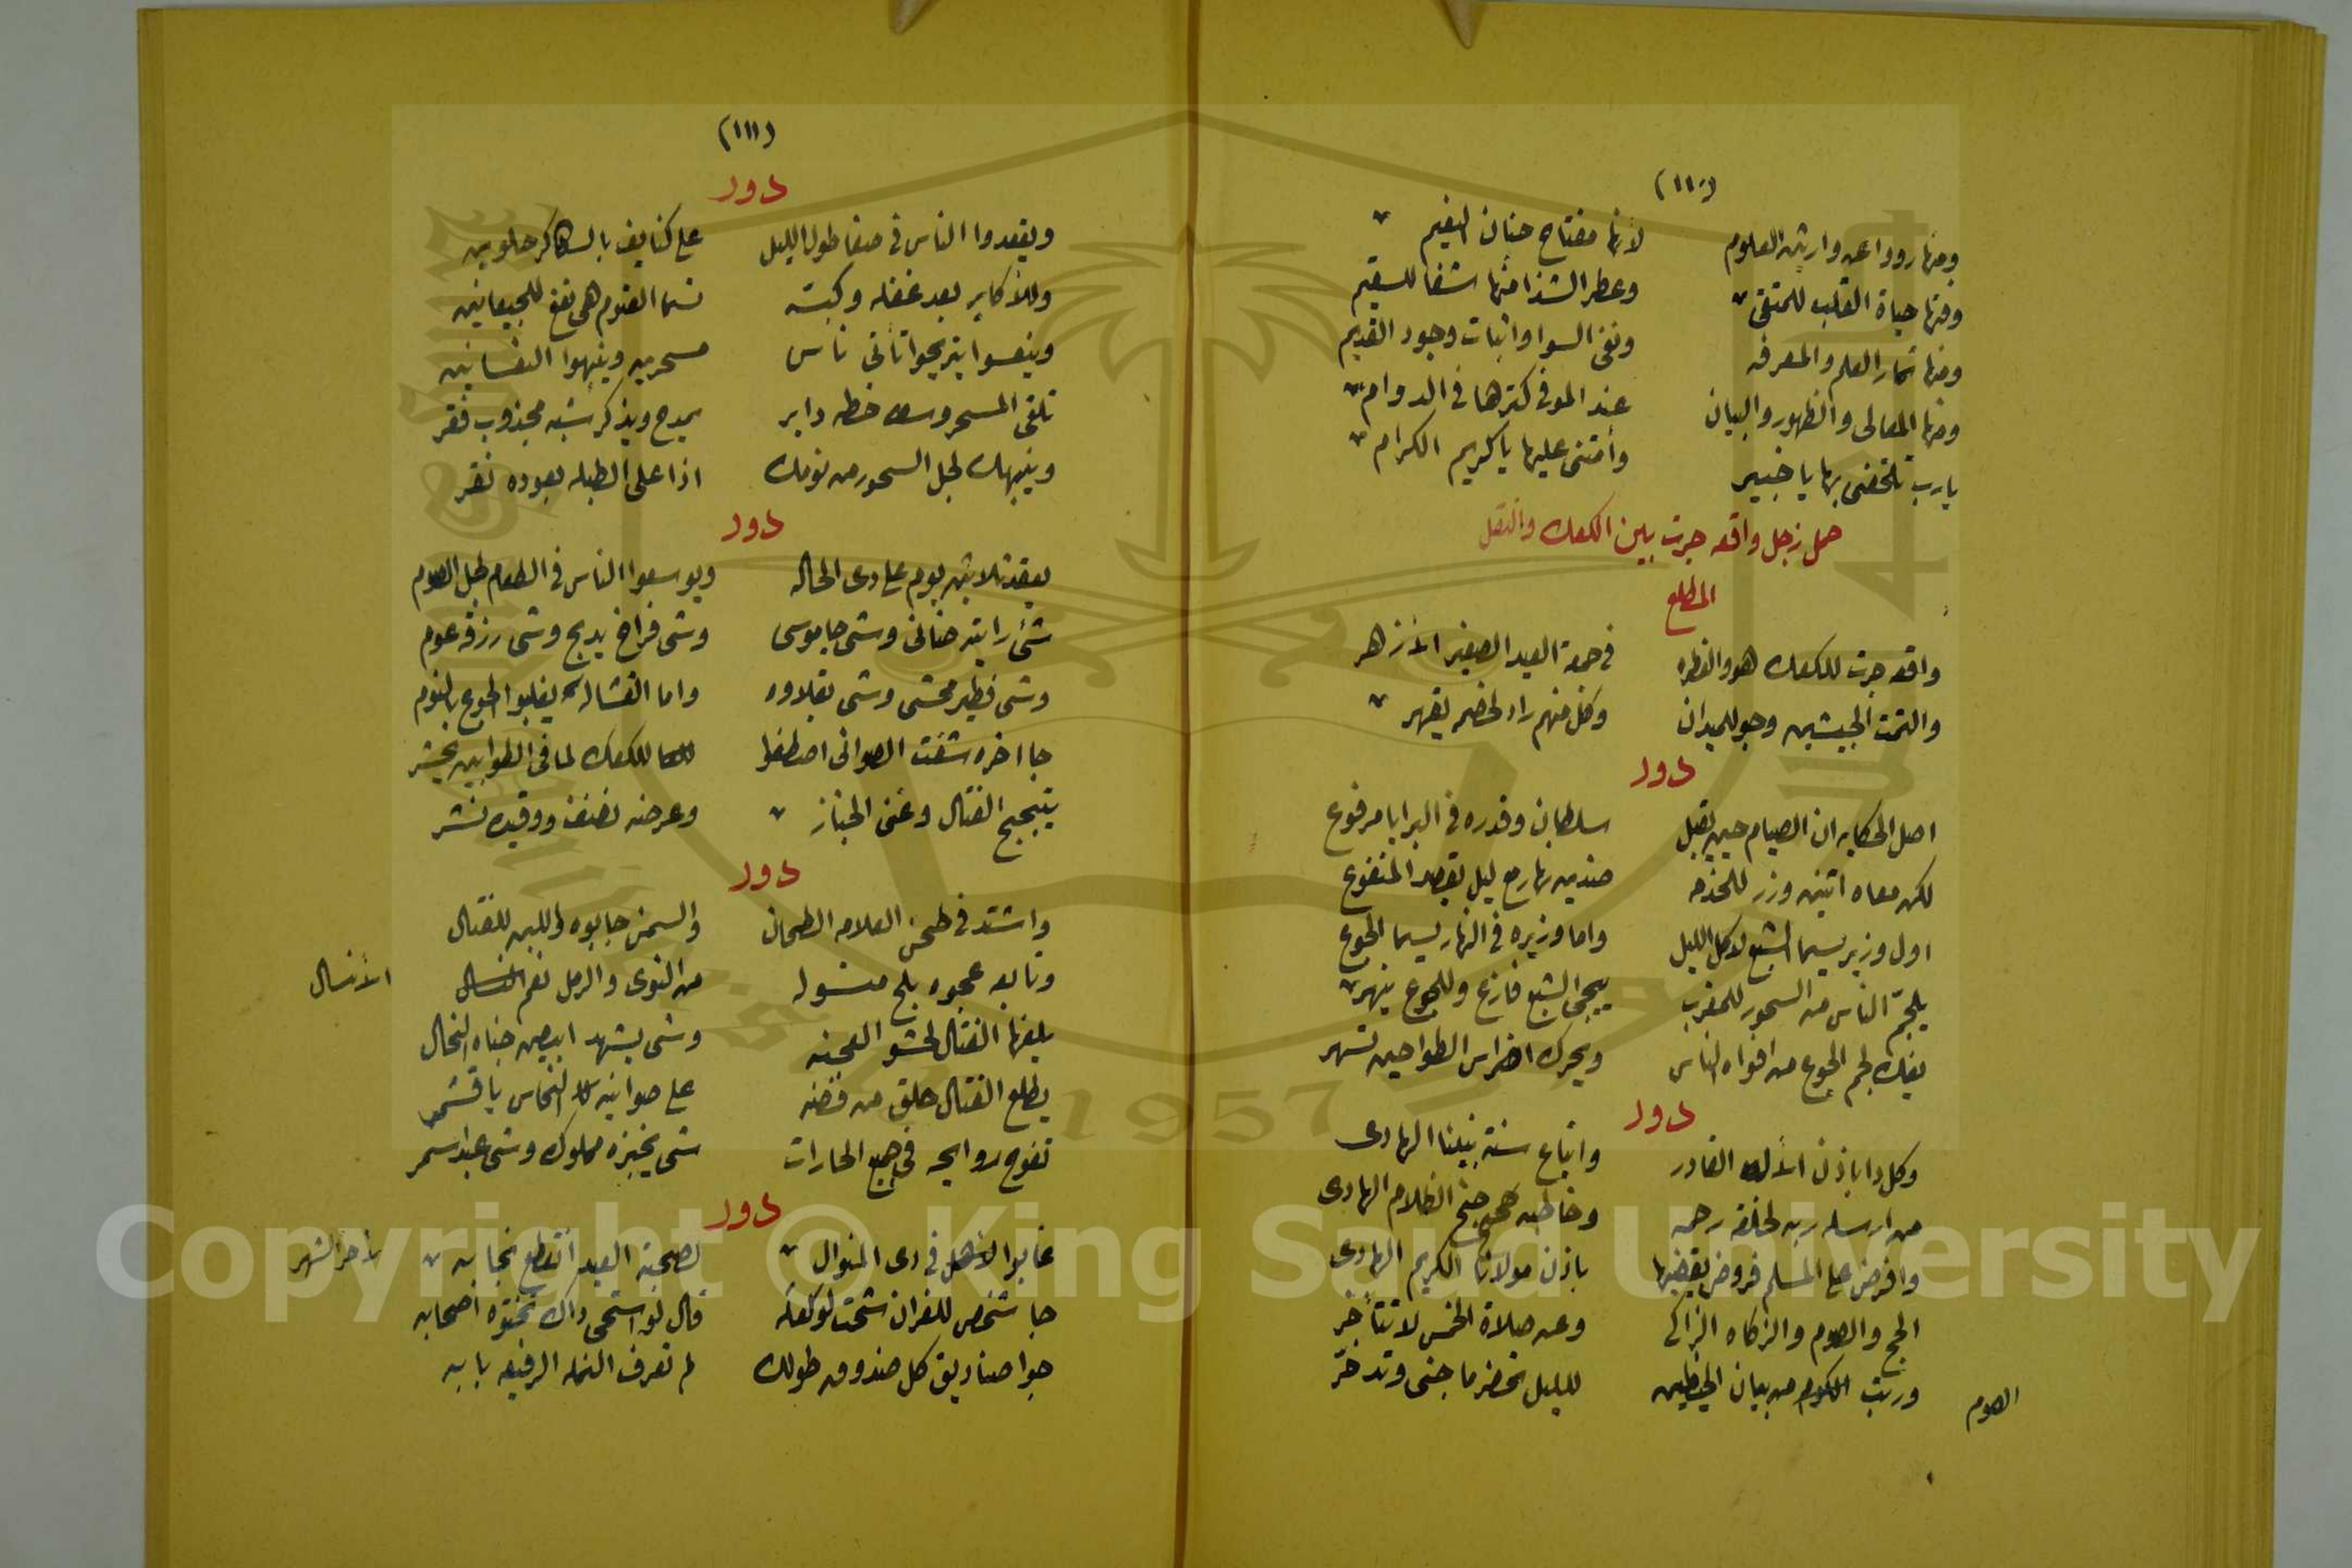 (١١٠)
ومنها رووا عن وارثين العلوم لانها مفتاح جنان النعيم
ومنها حياة القلب للمتقى وعطر الشذا منها شفا للسقيم
ومنها ثمار العلم والمعرفه ونفى السوا واثبات وجود القديم
ومنها المعالى والظهور والبيان عند الموفى كترها فى الدوام
يارب تلحقنى بها يا خبير وأمتنى عليها ياكريم الكرام
حمل زجل واقعه جرت بين الكعك والنقل
المطلع
واقعه جرت للكعك هو والفطره فى جمعة العيد الصغير الأزهر
والتمت الجيشين وجو للميدان وكل منهم راد لخصمه يقهر
دور
اصل الحكايه ان الصيام حين يقبل سلطان وقدره فى البرايا مرفوع
لكن معاه اتنين وزر للخدمه ضدين نهار مع ليل بقصد المنفوع
اول وزير يسما الشبع لاكل الليل واما وزيره فى النهار يسما الجوع
يلجم الناس من السحور للمغرب ييجى الشبع فازع وللجوع ينهر
يفك لجم الجوع من افواه الناس ويحرك اضراس الطواحين تسهر
دور
وكل دا باذن الأله القادر واتباع سنة نبينا الهادى
من ارسله ربه لخلقه رحمه وخاطبه جنح الظلام الهادى
وافرض على المسلم فروض يقضيها باذن مولانا الكريم الهادى
الحج والصوم والزكاه الزاكى وعن صلاة الخمس لا تتأخر
ورتب من بيان الخيطين لليل تحضر ما جنى وتدخر
الصوم
(١١١)
دور
ويقعدوا الناس فى صفا طول الليل على كنايف بالسكر حلوين
وللأكابر بعد غفله وكبسه نسما العتوم هى نفع للجيعانين
وينعسوا يتريحوا تأتى ناس مسحرين وينبهوا النعسانين
تلقى المسحر وسط خطه داير يمدح ويذكر شبه مجذوب فقر
وينبهك لجل السحور من نومك اذا على الطبله بعوده نقر
دور
يقعد تلاتين يوم على دى الحاله ويوسعوا الناس فى الطعام لجل الصوم
شئ رايته ضانى وشى جاموسى وشى فراخ يدبح وشى رزقه عوم
وشى فطير محشى وشى بقلاوه واما القشاله يغلبوا الجوع بالنوم
جا اخره شفت الصوانى اصطفوا للكعك لما فى الطوابين يحشر
يتبحبح الفتال وغنى الخباز وعرضه نضف ووقيده نشر
دور
واشتد فى طحن العلامه الطحان والسمن جابوه واللبن للفتال
وتابعه عجوه بلح منسوله من النوى والرمل نعم الأنسال
يلفها الفتال لحشو العجنه وشى بشهد ابيض جناه النحال
يطلع الفتال حلق من فضه على صوانيه النحاس يا قشمر
تفوح روايحه فى جميع الحارات شى يخبزه مملوك وشى عبد اسمر
دور
غابوا الأهل فى دى المنوال لصبحية العيد انقطع نحابه
لأخر الشهر
جا شخص للفران شحت لو كعكه قال لو استحى داك تختوه اصحابه
جوا صناديق كل صندوق طولك لم تعرف النمله الرفيعه بابه